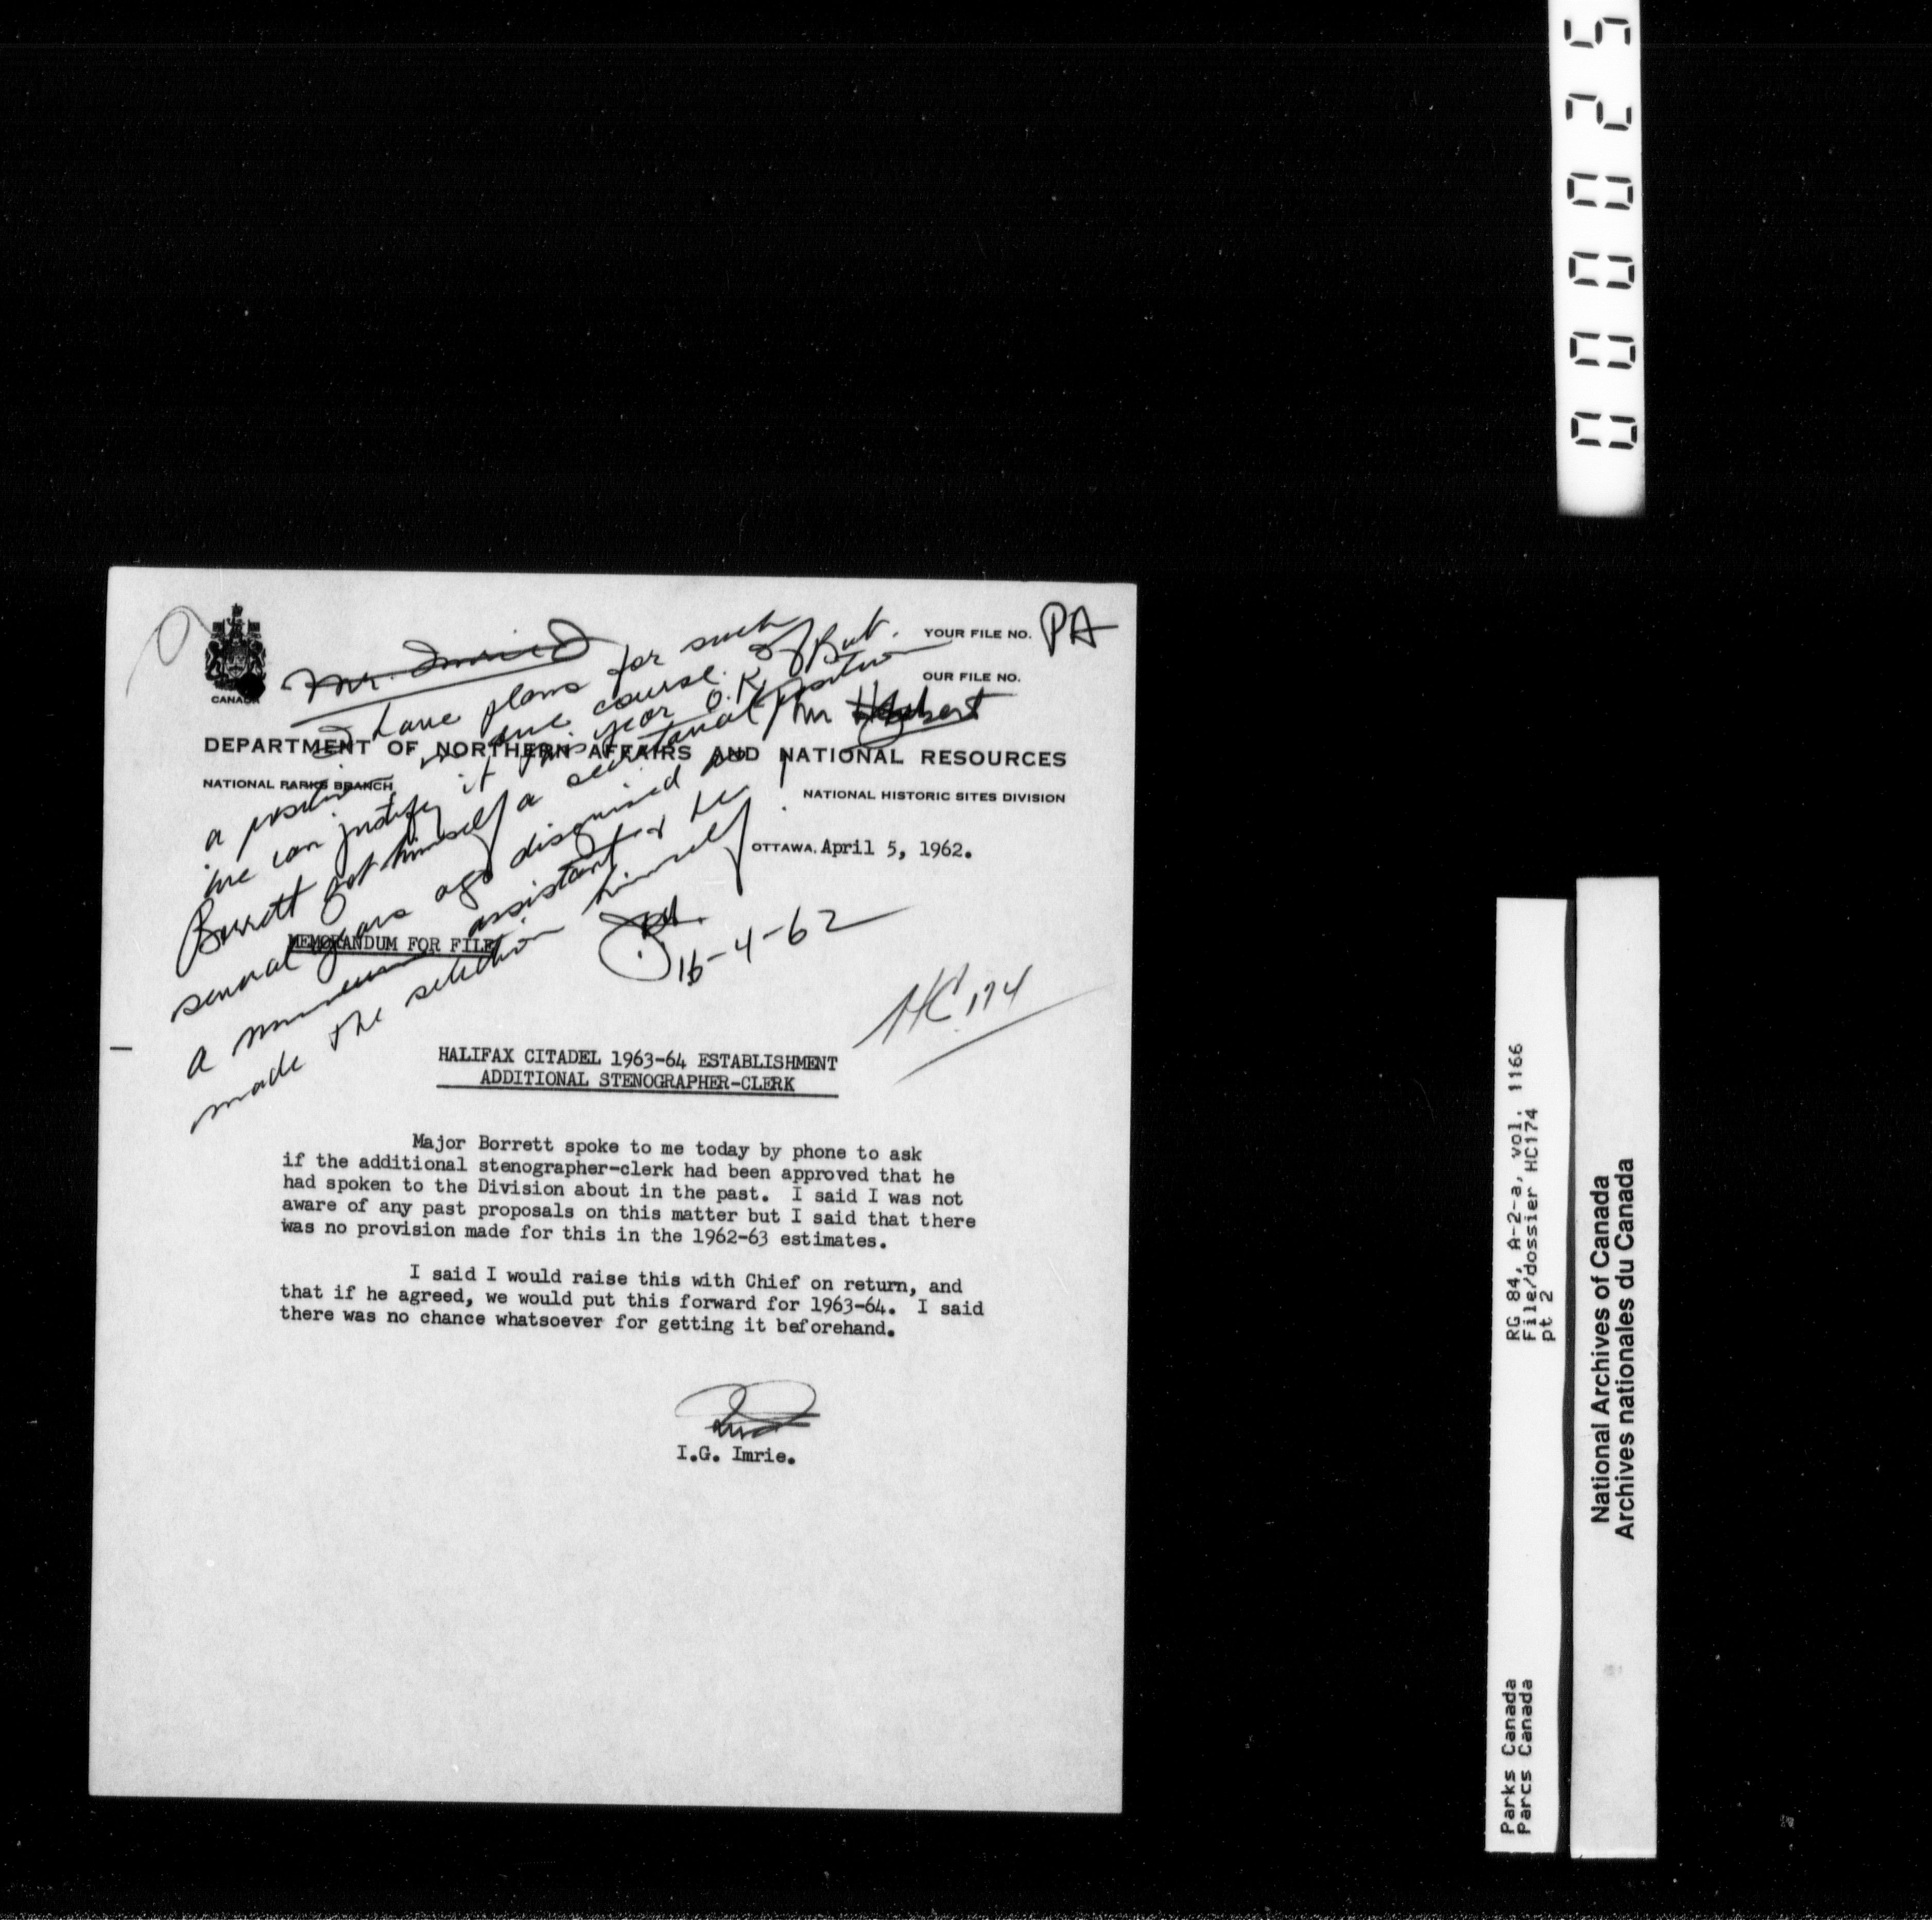 000025
YOUR FILE NO. PA
OUR FILE NO.
CANADA
Mr. Imrie
I have plans for such
a position in due course. If
we can justify it this year O.K. But
Borrett got himself a secretarial position
several years ago disguised as
a museum assistant & he
made the selection himself.
16-4-62
Mr
DEPARTMENT OF NORTHERN AFFAIRS AND NATIONAL RESOURCES
NATIONAL PARKS BRANCH
NATIONAL HISTORIC SITES DIVISION
OTTAWA, April 5, 1962.
MEMORANDUM FOR FILE
HC 174
HALIFAX CITADEL 1963-64 ESTABLISHMENT
ADDITIONAL STENOGRAPHER-CLERK
Major Borrett spoke to me today by phone to ask
if the additional stenographer-clerk had been approved that he
had spoken to the Division about in the past. I said I was not
aware of any past proposals on this matter but I said that there
was no provision made for this in the 1962-63 estimates.
I said I would raise this with Chief on return, and
that if he agreed, we would put this forward for 1963-64. I said
there was no chance whatsoever for getting it beforehand.
I.G. Imrie.
Parks Canada
Parcs Canada
RG 84, A-2-a, vol. 1166
File/dossier HC174
pt 2
National Archives of Canada
Archives nationales du Canada